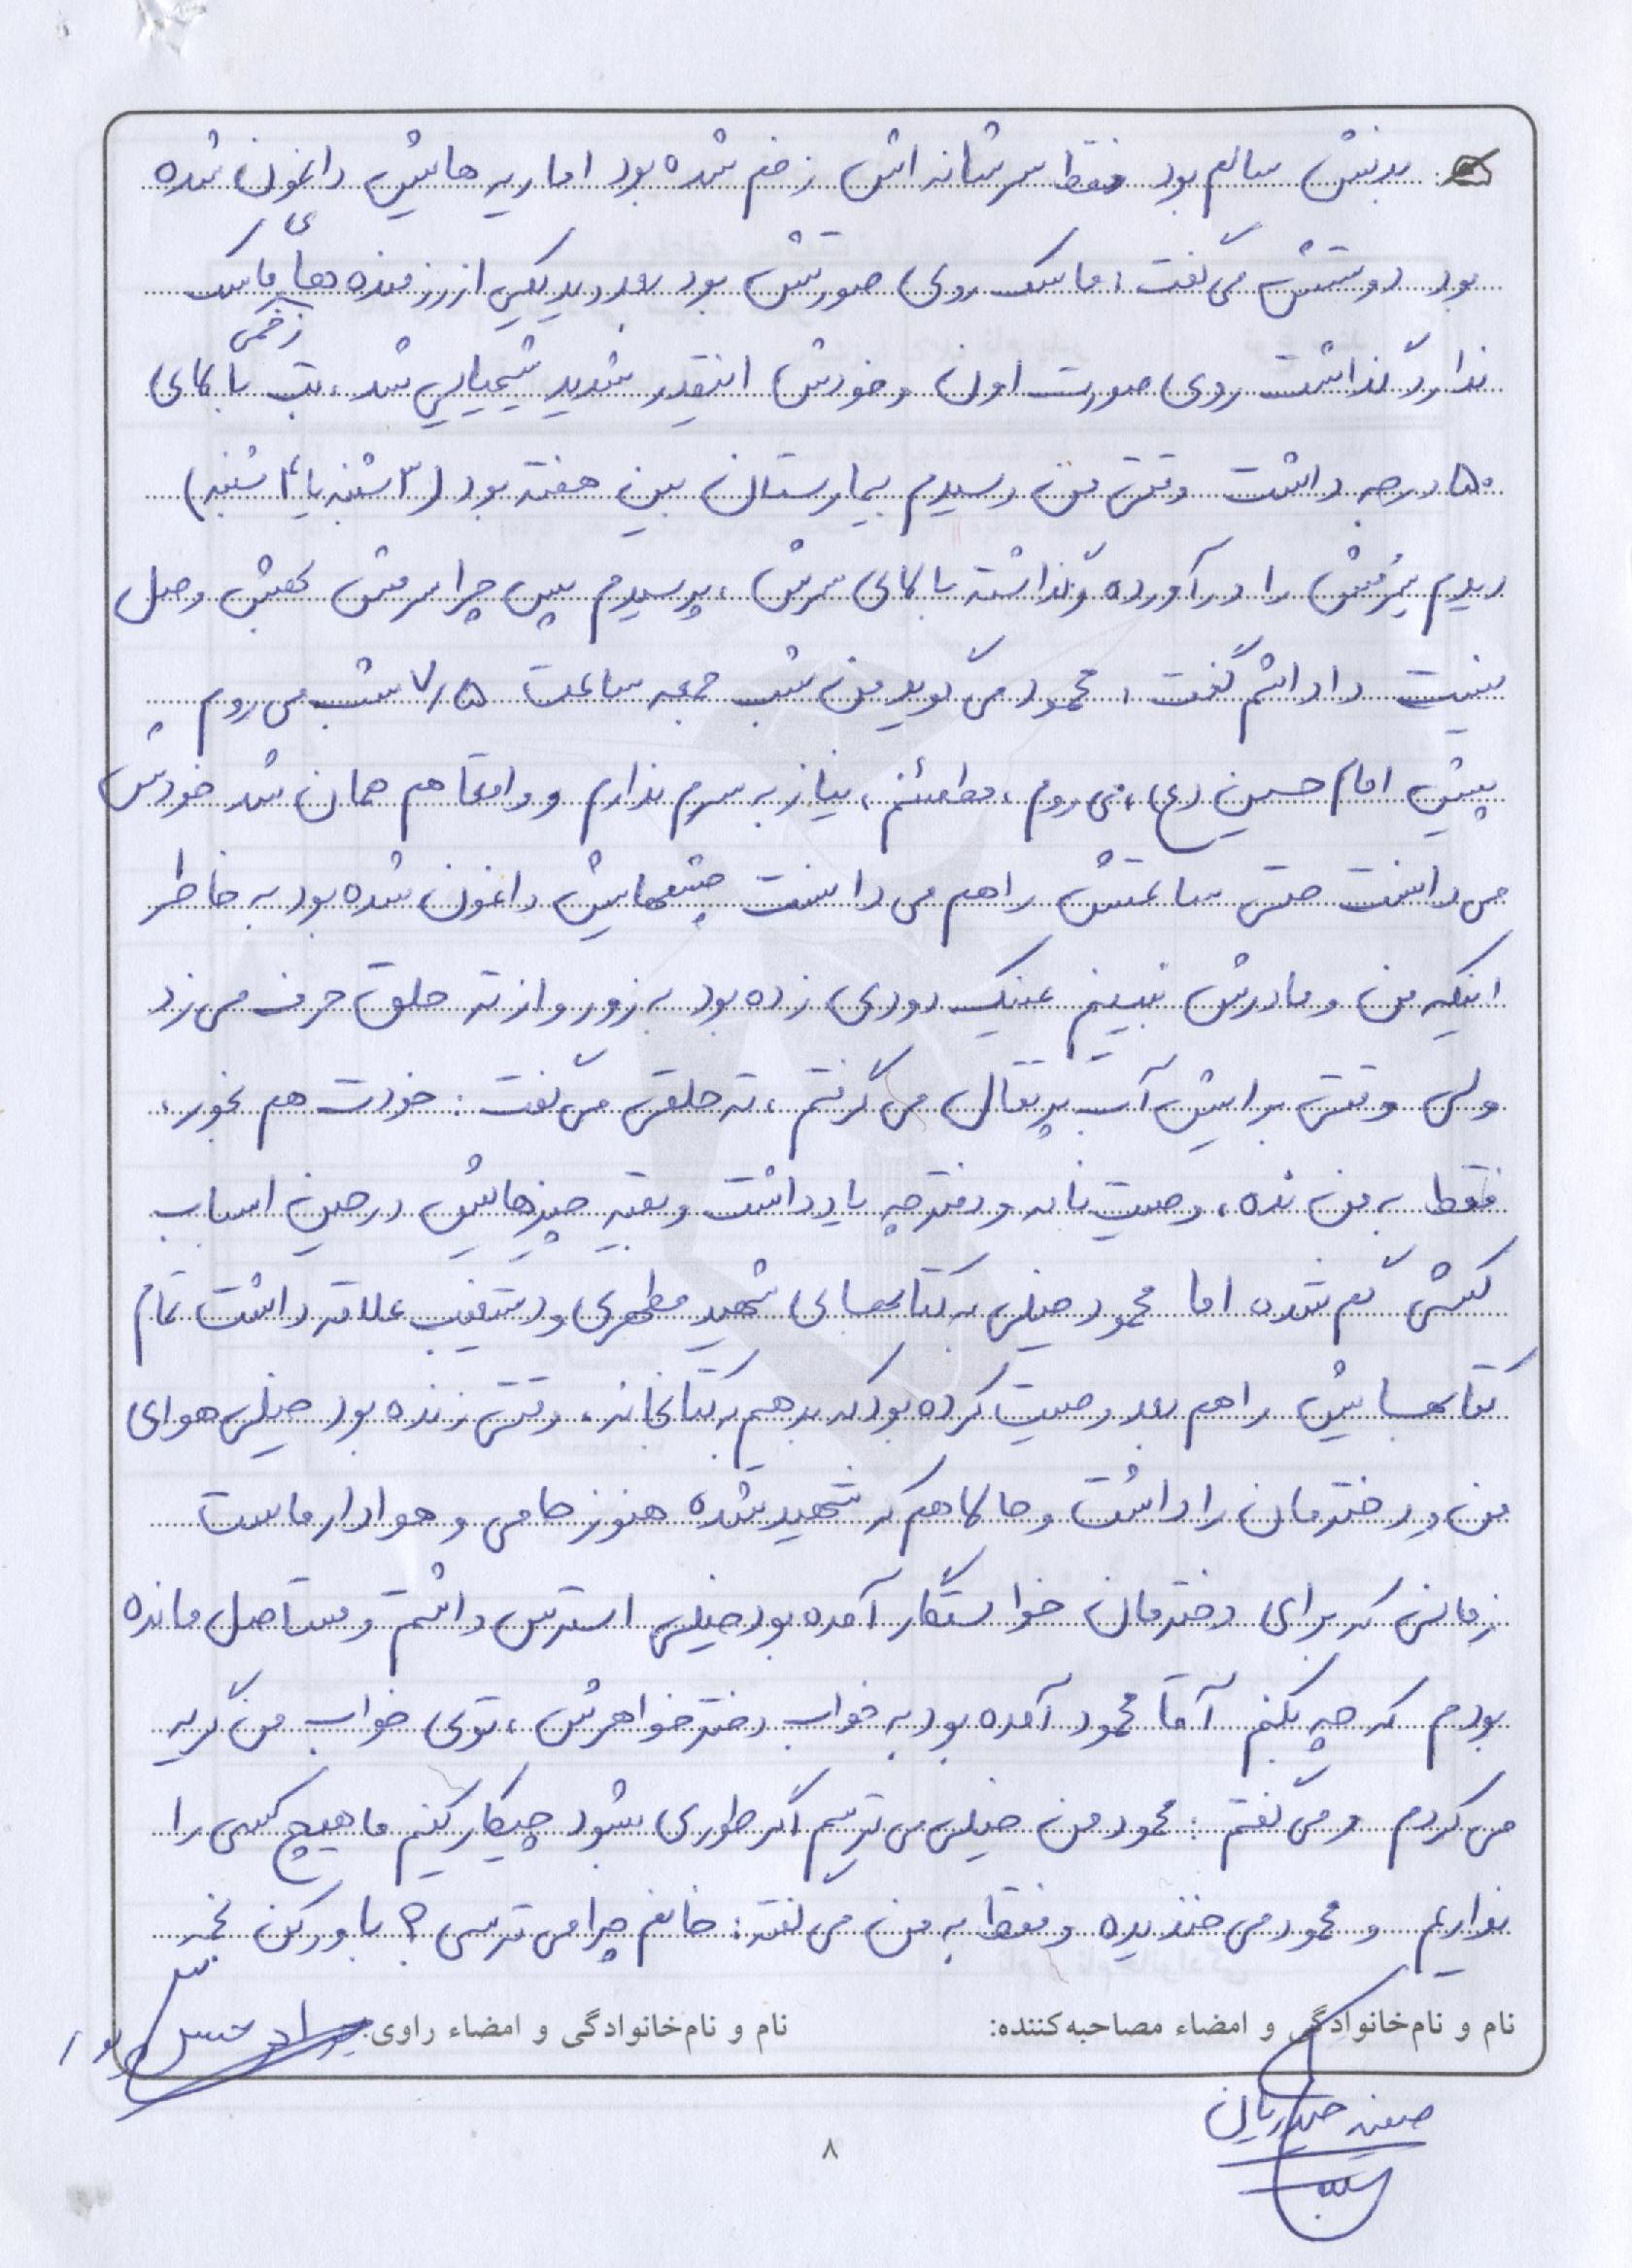 بدنش سالم بود فقط سر شانه اش زخم شده بود اما ریه هایش داغون شده
بود دوستش می گفت، ماسک روی صورتش بود بعد دید یکی از رزمنده های زخمی ماسک
ندارد گذاشت روی صورت اون و خودش انقدر شدید شیمیایی شد، تب بالای
۵۰ درجه داشت وقتی من رسیدم بیمارستان بین هفته بود (۳ شنبه یا ۴ شنبه)
دیدم سرمش را درآورده و گذاشته بالای سرش، پرسیدم پس چرا سرمش بهش وصل
نیست داداشم گفت، محمود می گوید من شب جمعه ساعت ۷/۵ شب می روم
پیش امام حسین (ع)، می روم، مطمئنم، نیاز به سرم ندارم و واقعا هم همان شد خودش
می دانست حتی ساعتش را هم می دانست چشمهایش داغون شده بود به خاطر
اینکه من و مادرش نبینیم عینک دودی زده بود به زور و از ته حلق حرف می زد
ولی وقتی برایش آب پرتقال می گرفتم، ته حلقی می گفت: خودت هم بخور،
فقط به من نده، وصیت نامه و دفترچه یادداشت و بقیه چیزهایش در حین اسباب
کشی گم شده اما محمود خیلی به کتابهای شهید مطهری و دستغیب علاقه داشت تمام
کتابهایش را هم بعد وصیت کرده بود که بدهیم به کتابخانه، وقتی زنده بود خیلی هوای
من و دخترمان را داشت و حالا هم که شهید شده هنوز حامی و هوادار ماست
زمانی که برای دخترمان خواستگار آمده بود خیلی استرس داشتم و مستاصل مانده
بودم که چه بکنم آقا محمود آمده بود به خواب دختر خواهرش، توی خواب من گریه
می کردم و می گفتم: محمود من خیلی می ترسم اگر طوری بشود چیکار کنیم ما هیچ کسی را
نداریم و محمود می خندیده و فقط به من می گفته: خانم چرا می ترسی؟ باور کن بخیر
نام و نام‌خانوادگی و امضاء مصاحبه‌کننده: نام و نام‌خانوادگی و امضاء راوی:
۸